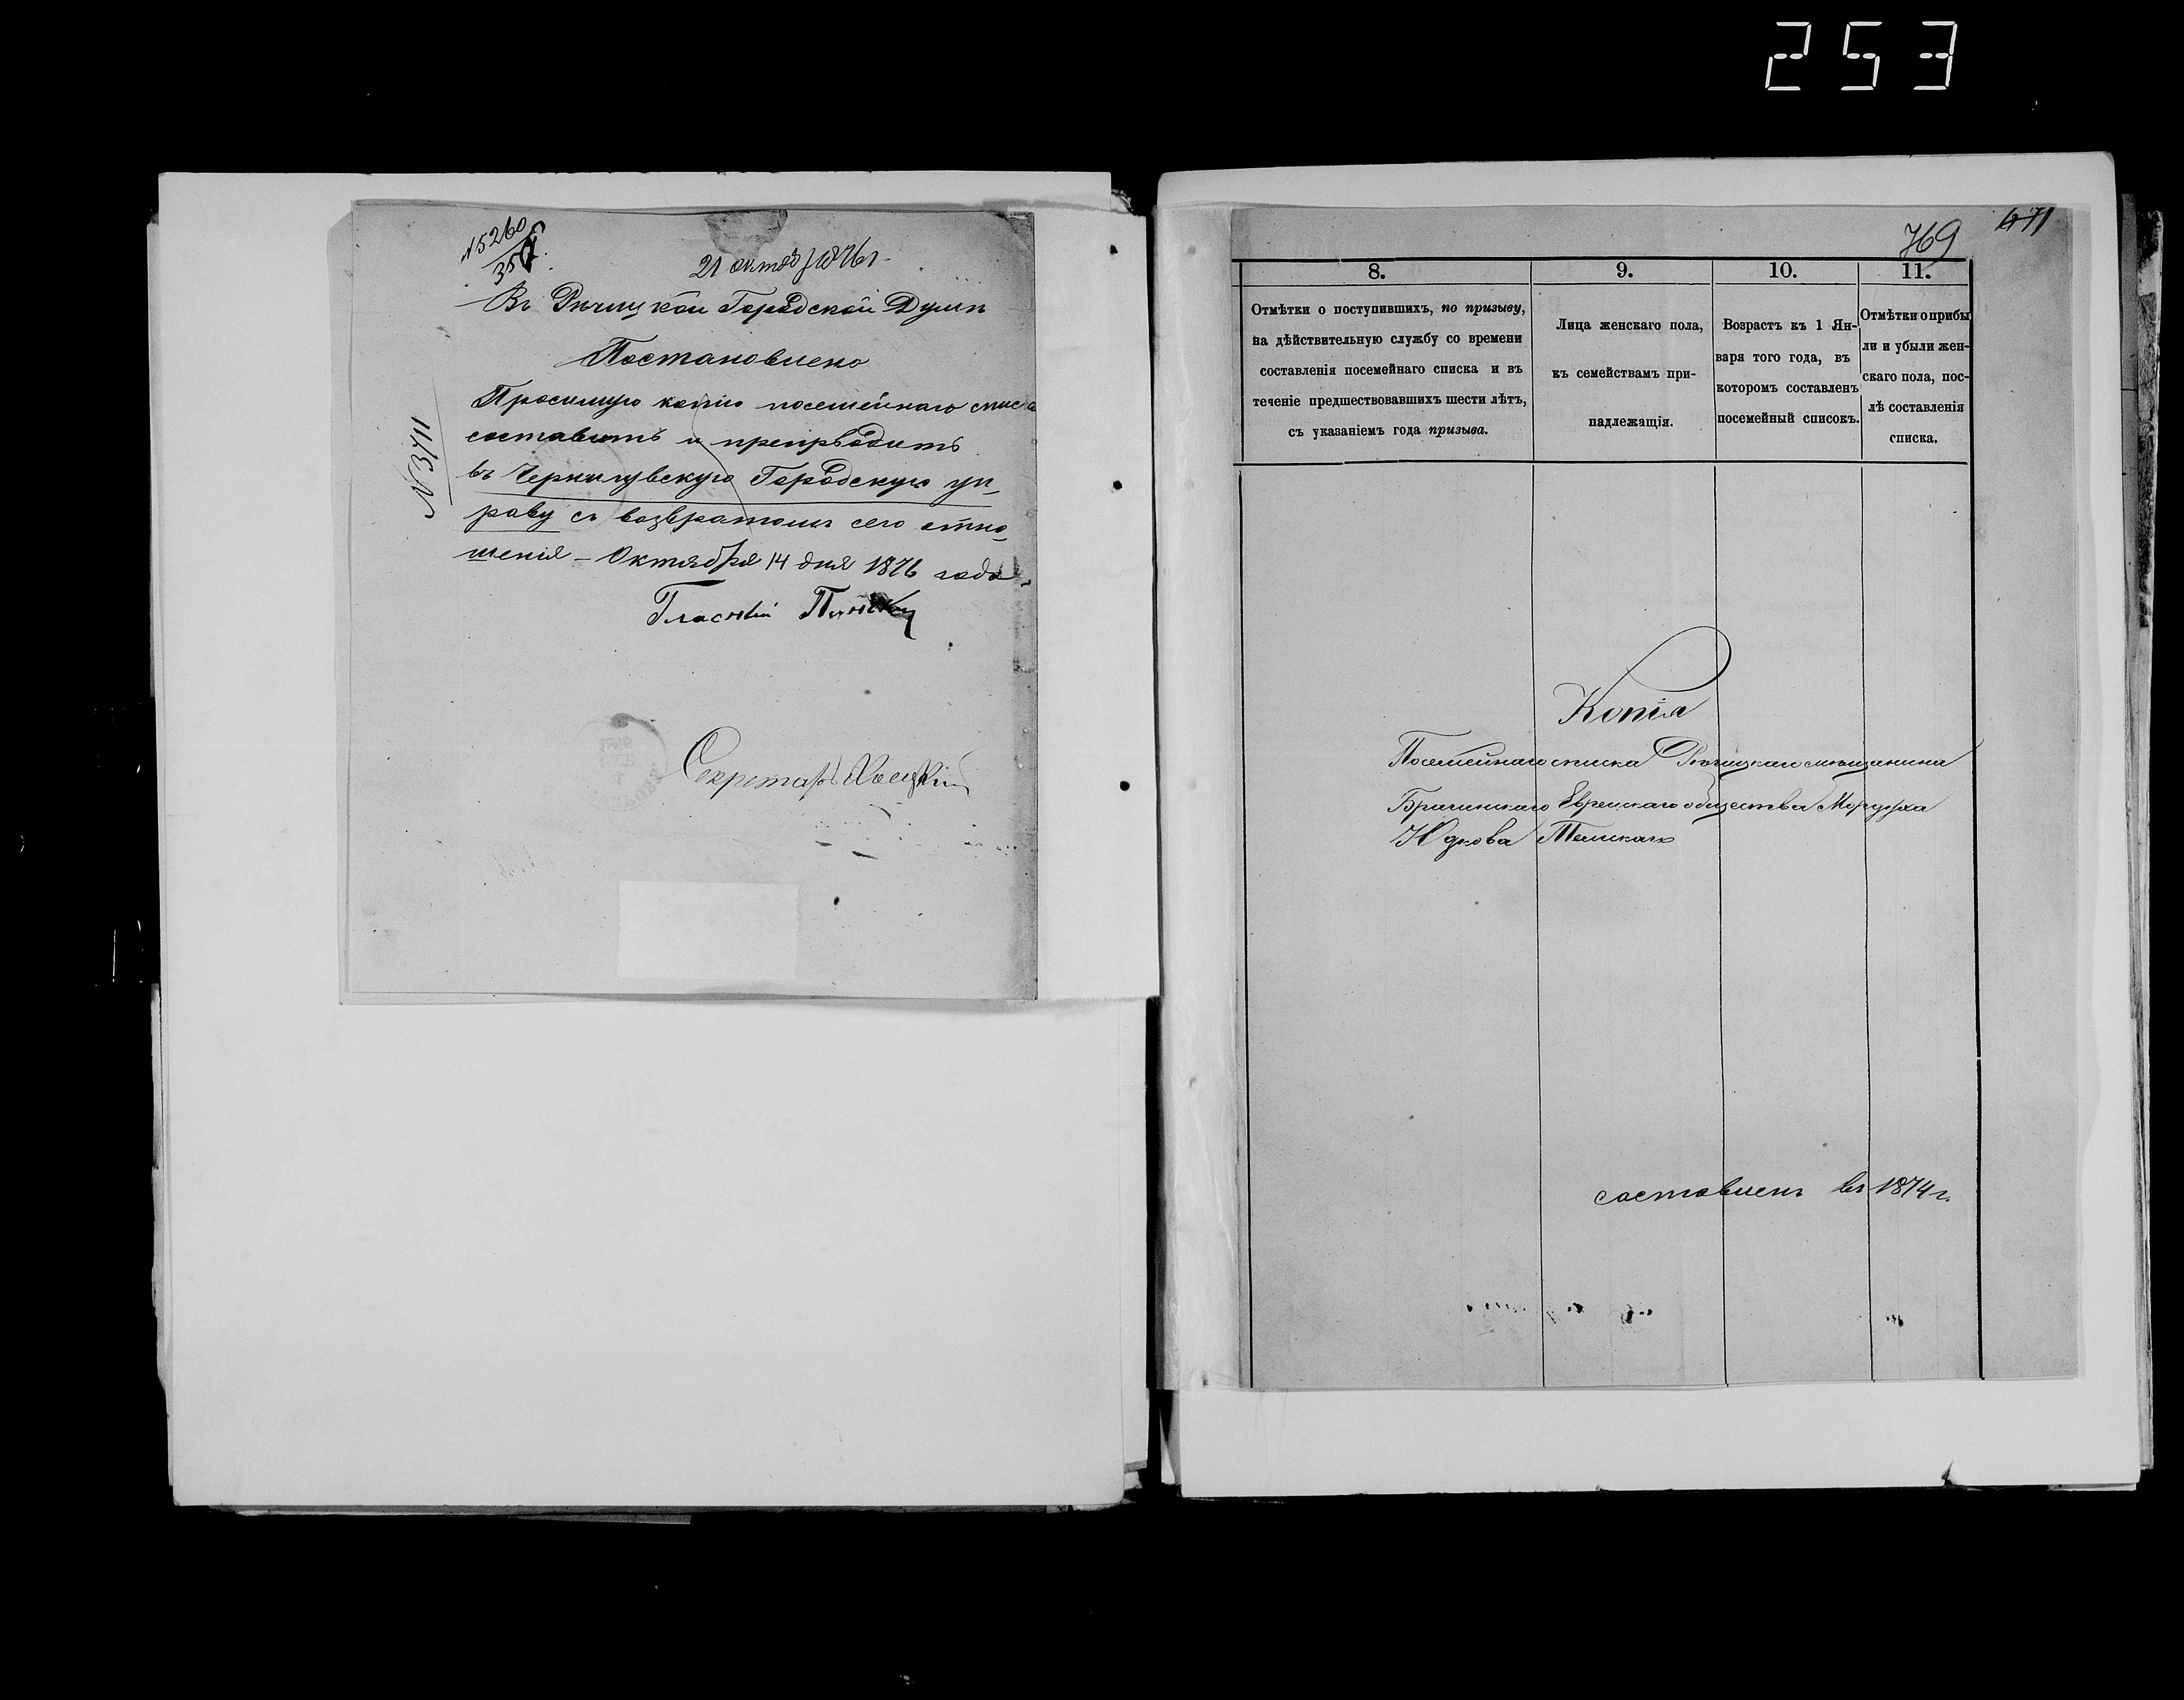 253
N 5260
21 октяб 1876 г.
Въ Рѣчицкой Городской Думѣ
Постановлено
Просимую копію посемейнаго списка
составить и препрводить
въ Черниговскую Городскую уп-
раву съ возвратомъ сего отно-
шенія – Октября 14 дня 1876 года
Гласный
Секретарь
N 3711
769
471
8. 9. 10. 11.
Отмѣтки о поступившихъ, по призыву,
на дѣйствительную службу со времени
составленія посемейнаго списка и въ
теченіе предшествовавшихъ шести лѣтъ,
съ указаніемъ года призыва.
Лица женскаго пола,
къ семействамъ при-
надлежащія.
Возрастъ къ 1 Ян-
варя того года, въ
которомъ составленъ
посемейный списокъ.
Отмѣтки о прибы
ли и убыли жен-
скаго пола, пос-
лѣ составленія
списка.
Копія
Посемейнаго списка Рѣчицкаго мѣщанина
Брагинскаго Еврейскаго общества Мордуха
Юдкова
составленъ въ 1874 г.